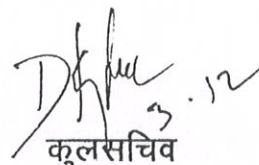 3.12
कुलसचिव